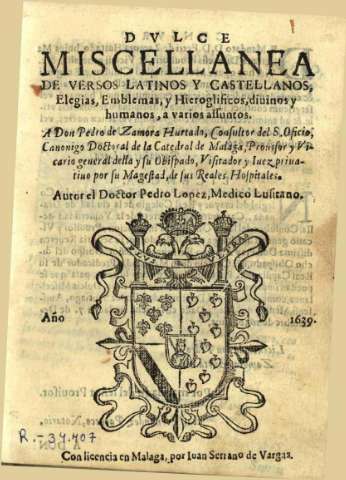 DVLCE
MISCELLANEA
DE VERSOS LATINOS Y CASTELLANOS,
Elegias, Emblemas, y Hieroglificos, diuinos y
humanos, a varios assuntos.
A Don Pedro de Zamora Hurtado, Consultor del S. Oficio,
Canonigo Doctoral de la Catedral de Malaga, Prouisor y Vi-
cario general della y su Obispado, Visitador y Iuez priua-
tiuo por su Magestad, de sus Reales Hospitales.
Autor el Doctor Pedro Lopez, Medico Lusitano.
Año 1639.
R.-34.407
Con licencia en Malaga, por Iuan Serrano de Vargas.